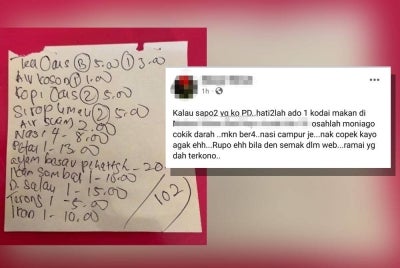 Teh Oais ③ 5.00 ① 3.00
Air Kosong 1 1.00
Kopi Oais ② 5.00
Sirap Limau ② 5.00
Air Suam 2.00
Nasi 4 - 8.00
Petai 1 - 13.00
ayam basau 20
Ikan Sambal 1 - 10.00
D. Salau 1 - 15.00
Terong 1 - 5.00
Ikan 1 - 10.00
102
1h
Kalau sapo2 yg ko PD..hati2lah ado 1 kodai makan di
osahlah moniago
cokik darah ..mkn ber4..nasi campur je...nak copek kayo
agak ehh...Rupo ehh bila den semak dlm web...ramai yg
dah terkono..